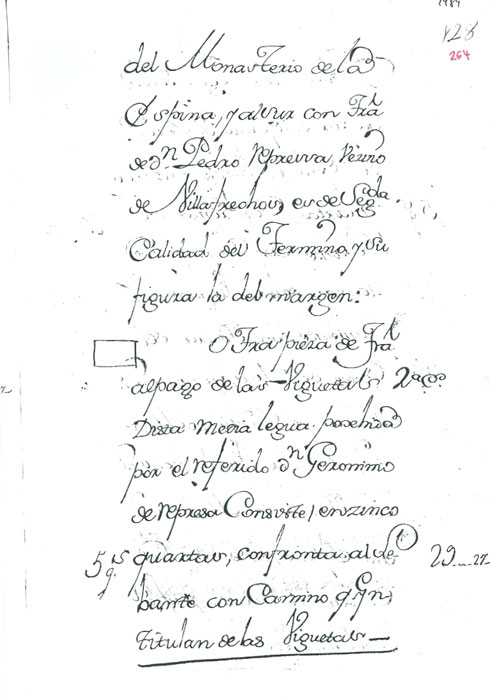 128
264
del Monasterio de la
Espina, y alsur con Fra^l
de d^n Pedro represa, vezino
de Villafrechos, es de Seg^da
Calidad del Termino y su
figura la del margen:
Otra pieza de Fra^l
alpago de las Viguetas 2^a
Dista media legua posehida
por el referido d^n Geronimo
de represa Consiste / en zinco
5 q^s quartas, confronta al de
bante con Camino q Yn,
titulan de las Viguetas —